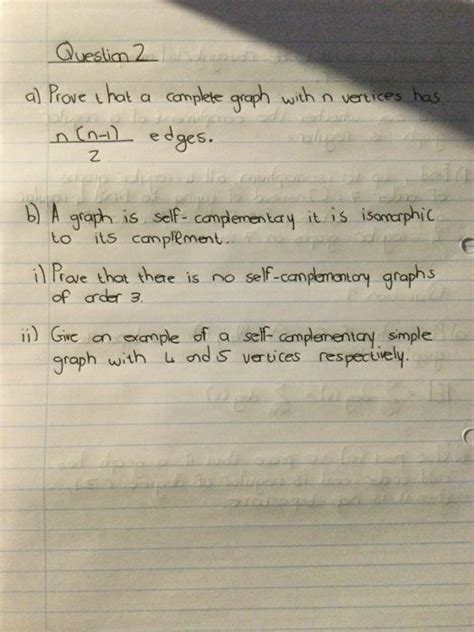 Question 2
a) Prove that a complete graph with n vertices has
n(n-1)
2
edges.
b) A graph is self-complementary it is isomorphic
to its complement.
i) Prove that there is no self-complementary graphs
of order 3.
ii) Give an example of a self-complementary simple
graph with 4 and 5 vertices respectively.